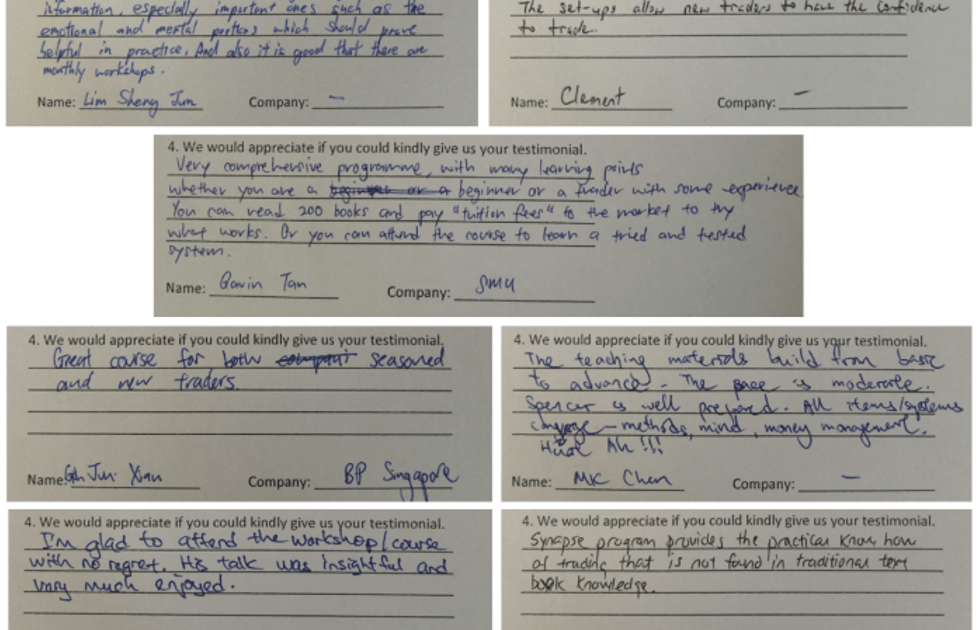 information, especially important ones such as the
emotional and mental portions which should prove
helpful in practice. And also it is good that there are
monthly workshops.
Name: Lim Sheng Jun Company: –
The set-ups allow new traders to have the confidence
to trade.
Name: Clement Company: –
4. We would appreciate if you could kindly give us your testimonial.
Very comprehensive programme, with many learning points
whether you are a beginner or a trader with some experience.
You can read 200 books and pay "tuition fees" to the market to try
what works. Or you can attend the course to learn a tried and tested
system.
Name: Gavin Tan Company: SMU
4. We would appreciate if you could kindly give us your testimonial.
Great course for both seasoned
and new traders.
Name: Jun Xian Company: BP Singapore
4. We would appreciate if you could kindly give us your testimonial.
The teaching materials build from basic
to advance. The pace is moderate.
Spencer is well prepared. All items/systems
– methods, mind, money management.
Huat Ah !!!
Name: MK Chen Company: –
4. We would appreciate if you could kindly give us your testimonial.
I'm glad to attend the workshop/course
with no regret. His talk was insightful and
very much enjoyed.
4. We would appreciate if you could kindly give us your testimonial.
Synapse program provides the practical know how
of trading that is not found in traditional text
book knowledge.